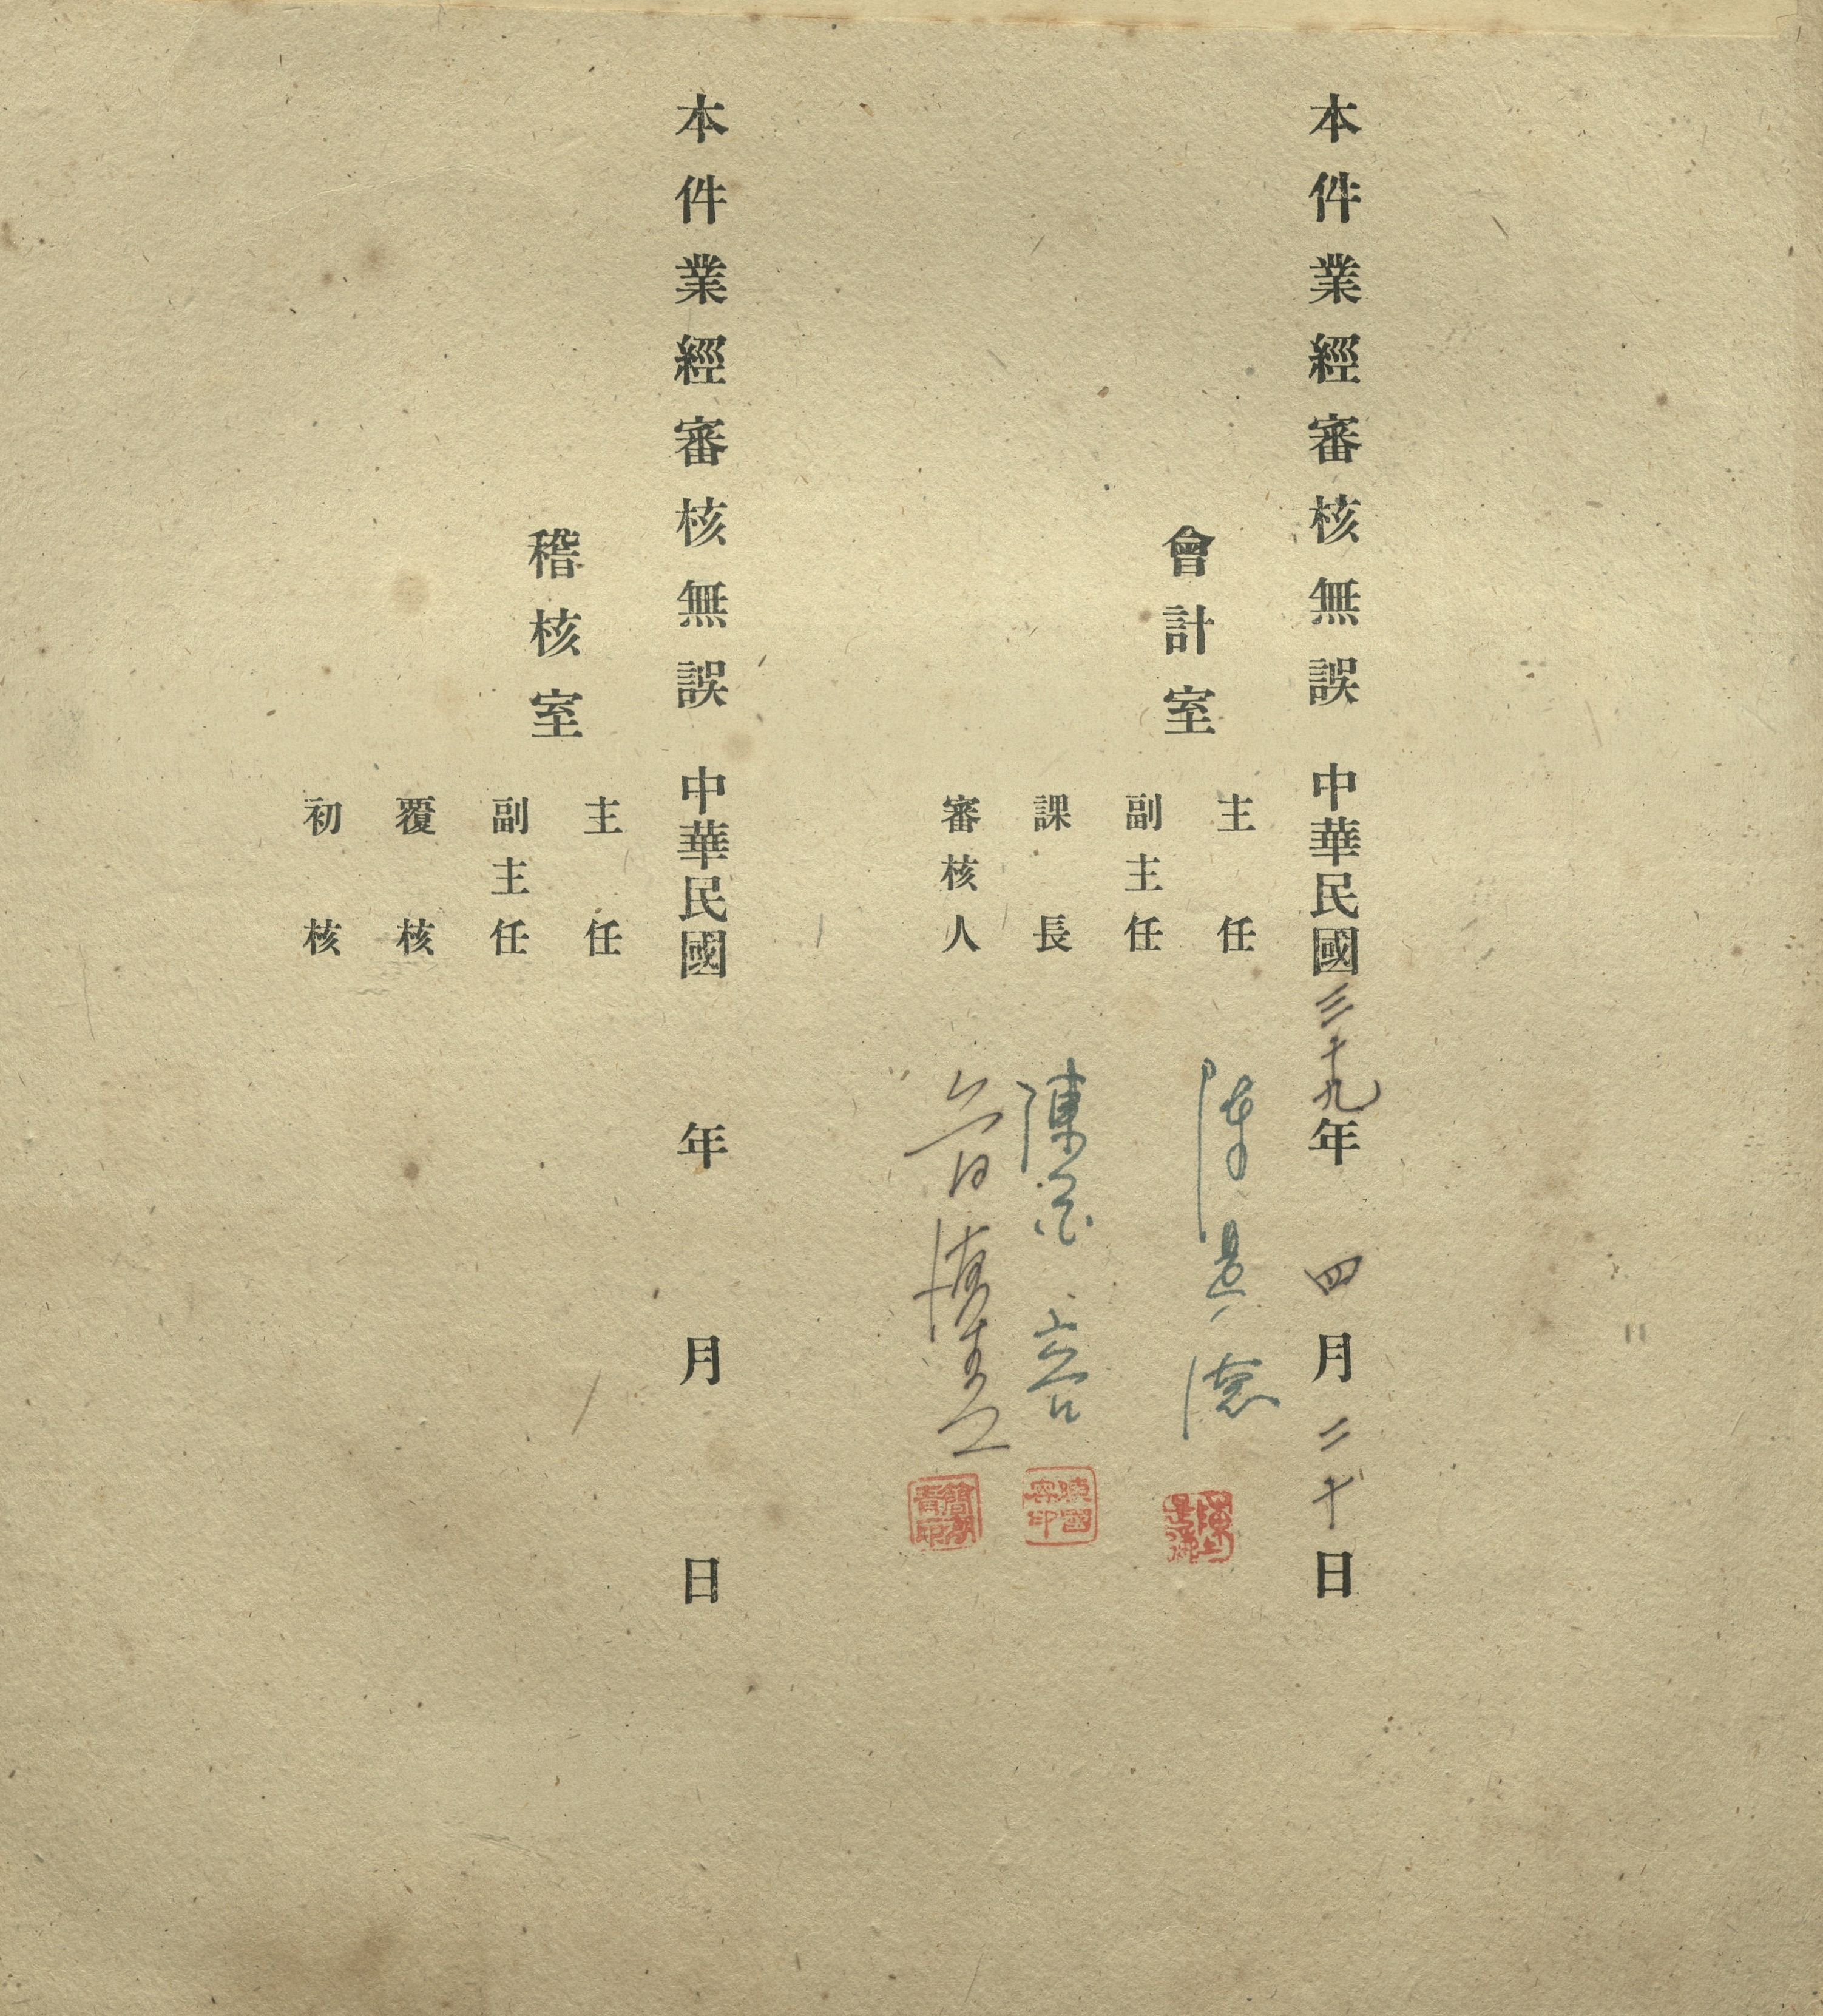 本件業經審核無誤 中華民國三十九年四月二十日
會計室
主任 陳
副主任
課長 陳
審核人
本件業經審核無誤 中華民國 年 月 日
稽核室
主任
副主任
覆核
初核